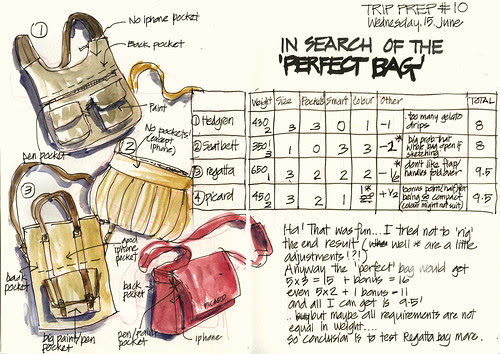 TRIP PREP #10
Wednesday. 15. June
IN SEARCH OF THE
'PERFECT BAG'
1
No iphone pocket
Back pocket
Paint
pen pocket
2
No pockets!
(except
iphone)
3
good
iphone
pocket
back
pocket
big paint/pen
pocket
4
back
pocket
pen/paint
pocket
iphone
PICARD
Weight Size Pockets Smart Colour Other TOTAL
1 Hedgren 430 2 3 3 0 1 -1 too many gelato drips 8
2 Seatbelt 350 3 1 0 3 3 -2* big prob that whole bag open if sketching 8
3 regatta 650 1 3 2 2 2 -½* don't like flap/ handles fold over 9.5
4 picard 450 2 3 2 2 1* +½ bonus point (half) for being so compact (colour might not suit) 9.5
Ha! That was fun... I tried not to 'rig'
the end result (when well * are a little
adjustments!?!)
Anyway the 'perfect' bag would get
5x3 = 15 + bonus = 16
even 5x2 + 1 bonus = 11
and all I can get is 9.5!
.. but maybe all requirements are not
equal in weight....
so 'conclusion' is to test Regatta bag more..